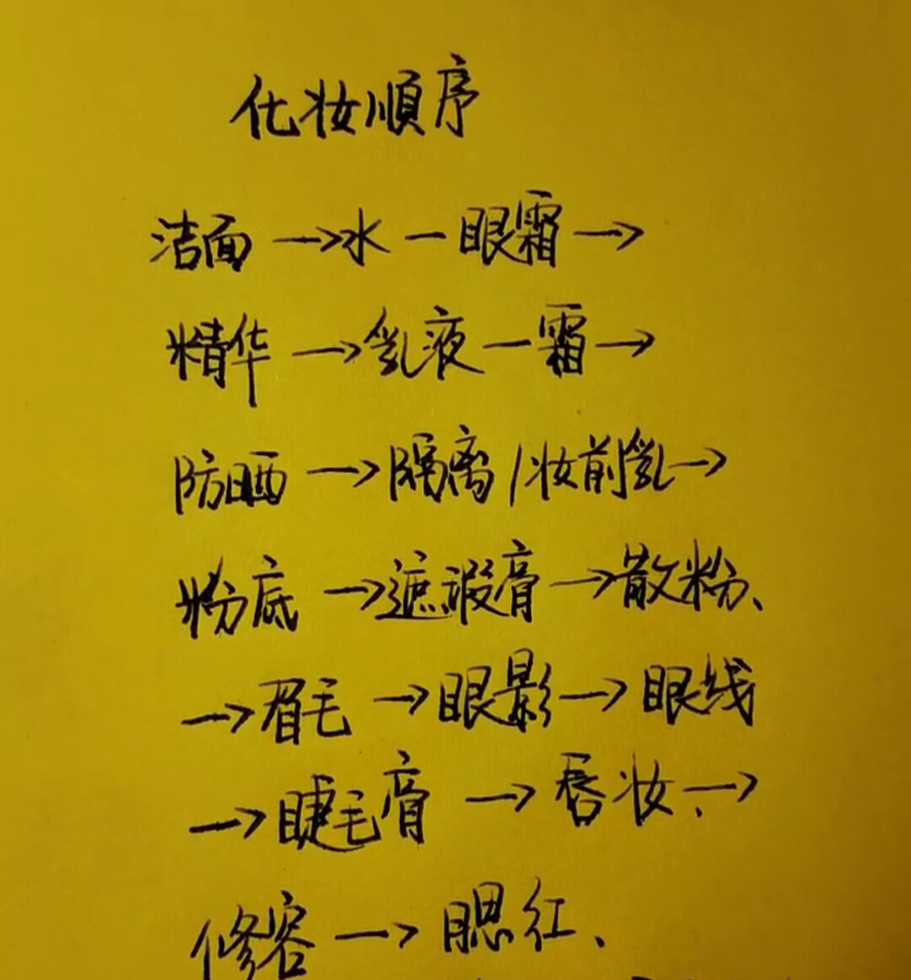 化妆順序
洁面→水一眼霜→
精华→乳液一霜→
防晒→隔离/妆前乳→
粉底→遮瑕膏→散粉、
→眉毛→眼影→眼线
→睫毛膏→唇妆、→
修容→腮红、